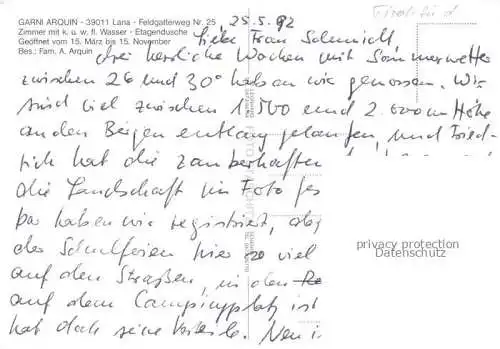 GARNI ARQUIN - 39011 Lana - Feldgatterweg Nr. 25
Zimmer mit k. u. w. fl. Wasser - Etagendusche
Geöffnet vom 15. März bis 15. November
Bes.: Fam. A. Arquin
25.5.92
Liebe Frau Schmidt
drei herrliche Wochen mit Sommerwetter
zwischen 26 und 30° haben wir genossen. Wir
sind viel zwischen 1500 und 2.000 m Höhe
an den Bergen entlang gelaufen, und Fried-
rich hat die zauberhaften
die Landschaft im Foto fes
haben wir registriert, daß
der Schulferien hier so viel
auf den Straßen, in den
auf dem Campingplatz ist
hat doch seine Vorteile. Nun i
privacy protection
Datenschutz